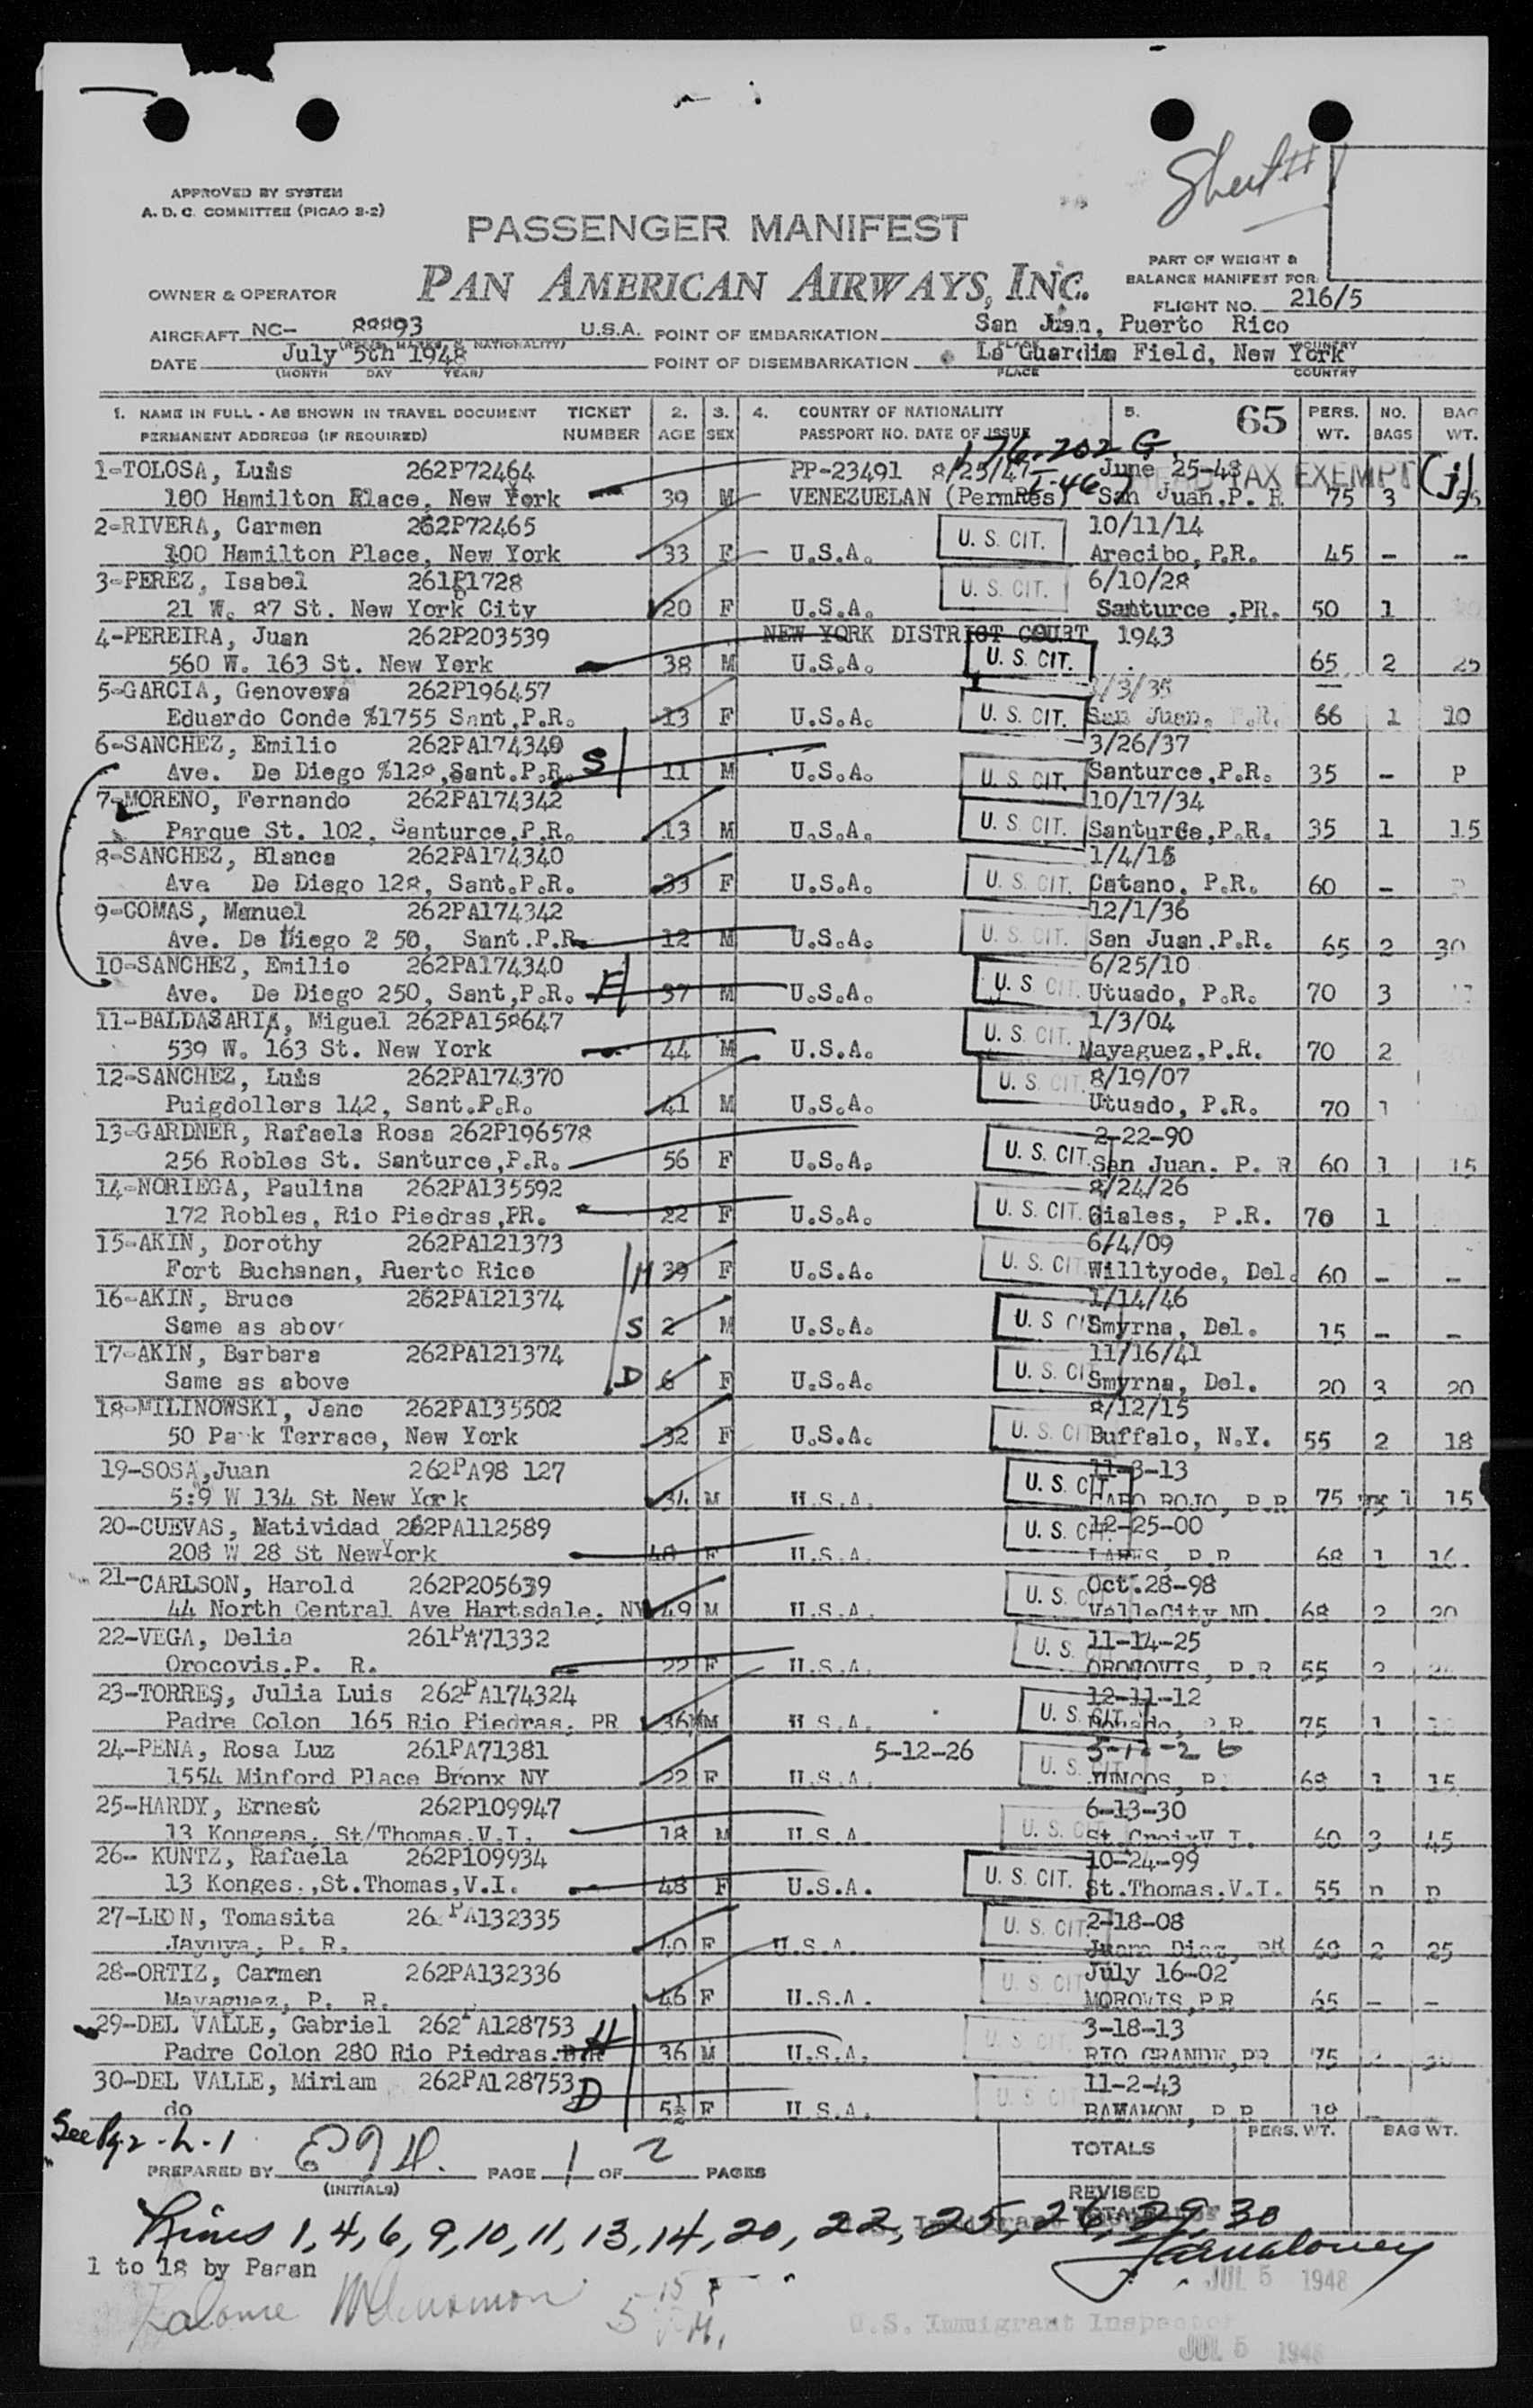 Sheet # 1
APPROVED BY SYSTEM
A. D. C. COMMITTEE (PICAO 8-2)
PASSENGER MANIFEST
PAN AMERICAN AIRWAYS, INC.
PART OF WEIGHT &
BALANCE MANIFEST FOR:
OWNER & OPERATOR
FLIGHT NO. 216/5
AIRCRAFT NC- 88893 U.S.A. POINT OF EMBARKATION San Juan, Puerto Rico
DATE July 5th 1948 POINT OF DISEMBARKATION La Guardia Field, New York
(MONTH DAY YEAR) PLACE COUNTRY
1. NAME IN FULL - AS SHOWN IN TRAVEL DOCUMENT TICKET 2. 3. 4. COUNTRY OF NATIONALITY 5. 65 PERS. NO. BAG
PERMANENT ADDRESS (IF REQUIRED) NUMBER AGE SEX PASSPORT NO. DATE OF ISSUE WT. BAGS WT.
176-202 G.
1-TOLOSA, Luis 262P72464 PP-23491 8/25/47 June 25-48 HEAD TAX EXEMPT (j)
100 Hamilton Place, New York 39 M VENEZUELAN (PermRes) San Juan,P. R 75 3
2-RIVERA, Carmen 262P72465 U. S. CIT. 10/11/14
100 Hamilton Place, New York 33 F U.S.A. Arecibo, P.R. 45 - -
3-PEREZ, Isabel 261P1728 U. S. CIT. 6/10/28
21 W. 87 St. New York City 20 F U.S.A. Santurce ,PR. 50 1
4-PEREIRA, Juan 262P203539 NEW YORK DISTRICT COURT 1943
560 W. 163 St. New York 38 M U.S.A. U. S. CIT. 65 2 25
5-GARCIA, Genoveva 262P196457 1/3/35
Eduardo Conde %1755 Sant,P.R. 13 F U.S.A. U. S. CIT. San Juan, P.R. 66 1 10
6-SANCHEZ, Emilio 262PA174340 S 3/26/37
Ave. De Diego %128,Sant.P.R. 11 M U.S.A. U. S. CIT. Santurce,P.R. 35 - P
7-MORENO, Fernando 262PA174342 10/17/34
Parque St. 102, Santurce,P.R. 13 M U.S.A. U. S. CIT. Santurce,P.R. 35 1 15
8-SANCHEZ, Blanca 262PA174340 1/4/15
Ave De Diego 128, Sant.P.R. 33 F U.S.A. U. S. CIT. Catano, P.R. 60 -
9-COMAS, Manuel 262PA174342 12/1/36
Ave. De Diego 2 50, Sant.P.R. 12 M U.S.A. U. S. CIT. San Juan,P.R. 65 2 30
10-SANCHEZ, Emilio 262PA174340 6/25/10
Ave. De Diego 250, Sant,P.R. F 37 M U.S.A. U. S CIT. Utuado, P.R. 70 3
11-BALDASARIA, Miguel 262PA158647 1/3/04
539 W. 163 St. New York 44 M U.S.A. U. S. CIT. Mayaguez,P.R. 70 2
12-SANCHEZ, Luis 262PA174370 U. S. CIT. 8/19/07
Puigdollers 142, Sant.P.R. 41 M U.S.A. Utuado, P.R. 70 1
13-GARDNER, Rafaela Rosa 262P196578 2-22-90
256 Robles St. Santurce,P.R. 56 F U.S.A. U. S. CIT. San Juan. P. R 60 1 15
14-NORIEGA, Paulina 262PA135592 8/24/26
172 Robles, Rio Piedras,PR. 22 F U.S.A. U. S. CIT. Ciales, P.R. 70 1
15-AKIN, Dorothy 262PA121373 6/4/09
Fort Buchanan, Puerto Rico M 39 F U.S.A. U. S. CIT. Willtyode, Del. 60 - -
16-AKIN, Bruce 262PA121374 1/14/46
Same as above S 2 M U.S.A. U. S CIT Smyrna, Del. 15 - -
17-AKIN, Barbara 262PA121374 11/16/41
Same as above D 6 F U.S.A. U. S. CIT Smyrna, Del. 20 3 20
18-MILINOWSKI, Jane 262PA135502 8/12/15
50 Park Terrace, New York 32 F U.S.A. U. S. CIT Buffalo, N.Y. 55 2 18
19-SOSA,Juan 262PA98 127 11-8-13
5:9 W 134 St New York 34 M U.S.A. U. S. CIT CABO ROJO, P.R 75 1 15
20-CUEVAS, Natividad 262PA112589 U. S. CIT 12-25-00
208 W 28 St NewYork 48 F U.S.A. LARES, P.R 68 1 16
21-CARLSON, Harold 262P205639 Oct.28-98
44 North Central Ave Hartsdale, NY 49 M U.S.A. U. S. CIT ValleCity ND. 68 2 20
22-VEGA, Delia 261PA71332 11-14-25
Orocovis,P. R. 22 F U.S.A. U. S. OROCOVIS, P.R 55 2
23-TORRES, Julia Luis 262PA174324 12-11-12
Padre Colon 165 Rio Piedras, PR 36 M U.S.A. U. S. CIT. P.R. 75 1
24-PENA, Rosa Luz 261PA71381 5-12-26 5-12-26
1554 Minford Place Bronx NY 22 F U.S.A. U. S. JUNCOS, P. 68 1 15
25-HARDY, Ernest 262P109947 6-13-30
13 Kongens, St/Thomas,V.I. 18 M U.S.A U. S. CIT St. CroixV I. 60 3 45
26- KUNTZ, Rafaela 262P109934 10-24-99
13 Konges.,St.Thomas,V.I. 48 F U.S.A. U. S. CIT. St.Thomas,V.I. 55 p p
27-LEON, Tomasita 26 PA132335 U. S. CIT 2-18-08
Jayuya, P. R. 40 F U.S.A. Juana Diaz, PR 68 2 25
28-ORTIZ, Carmen 262PA132336 July 16-02
Mayaguez, P. R. 46 F U.S.A. U. S. CIT MOROVIS,P.R 65 - -
29-DEL VALLE, Gabriel 262PA128753 H 3-18-13
Padre Colon 280 Rio Piedras.P.R 36 M U.S.A. U. S. CIT RIO GRANDE,PR 75
30-DEL VALLE, Miriam 262PA128753 D 11-2-43
do 5½ F U.S.A. U. S CIT BAYAMON, P.R 18 -
See Pg. 2 - L - 1
PERS. WT. BAG WT.
TOTALS
PREPARED BY EJH. PAGE 1 OF 2 PAGES
(INITIALS)
REVISED
TOTALS
Lines 1, 4, 6, 9, 10, 11, 13, 14, 20, 22, 25, 26, 29, 30
1 to 18 by Paran
JUL 5 1948
U.S. Immigrant Inspector
JUL 5 1948